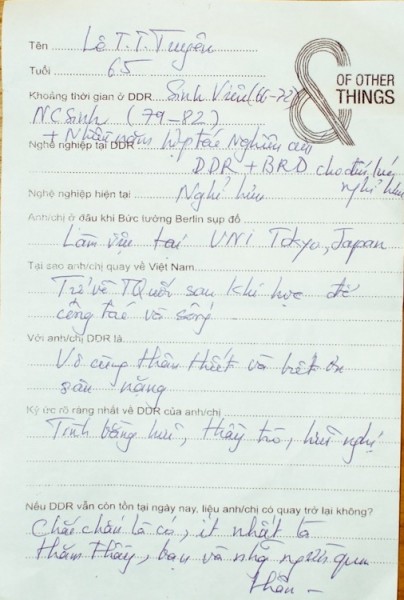 & OF OTHER
THINGS
Tên Lê T.T. Tuyên
Tuổi 65
Khoảng thời gian ở DDR Sinh Viên (66-72)
NC Sinh (79-82)
+ Nhiều năm hợp tác Nghiên cứu
Nghề nghiệp tại DDR
DDR + BRD cho đến lúc
nghỉ hưu
Nghề nghiệp hiện tại Nghỉ hưu
Anh/chị ở đâu khi Bức tường Berlin sụp đổ
Làm việc tại UNI Tokyo, Japan
Tại sao anh/chị quay về Việt Nam
Trở về TQuốc sau khi học để
công tác và sống
Với anh/chị DDR là
Vô cùng thân thiết và biết ơn
sâu nặng
Ký ức rõ ràng nhất về DDR của anh/chị
Tình bằng hữu, thầy trò, hữu nghị
Nếu DDR vẫn còn tồn tại ngày nay, liệu anh/chị có quay trở lại không?
Chắc chắn là có, ít nhất là
thăm thầy, bạn và những người quen
thân -